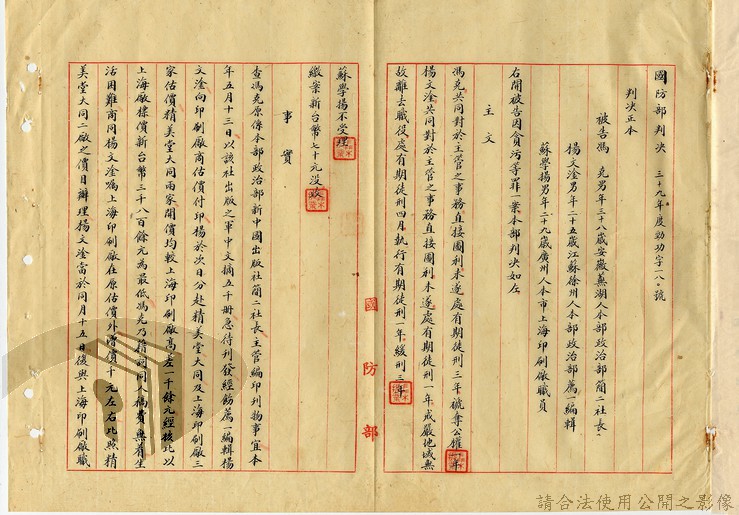 國防部判決 三十九年度勁功字一八〇號
判決正本
被告馮 堯男年三十八歲安徽蕪湖人本部政治部簡二社長
楊文淦男年二十五歲江蘇徐州人本部政治部薦一編輯
蘇學揚男年二十九歲廣州人本市上海印刷廠職員
右開被告因貪污等罪一案本部判決如左
主文
馮堯共同對於主管之事務直接圖利未遂處有期徒刑三年褫奪公權一年
楊文淦共同對於主管之事務直接圖利未遂處有期徒刑一年戒嚴地域無
故離去職役處有期徒刑四月執行有期徒刑一年緩刑三年
蘇學揚不受理
繳案新台幣七十元沒收
事實
查馮堯原係本部政治部新中國出版社簡二社長主管編印刊物事宜本
年五月十三日以該社出版之軍中文摘五千冊急待刊發經飭薦一編輯楊
文淦向印刷廠商估價付印楊於次日分赴精美堂大同及上海印刷廠三
家估價精美堂大同兩家開價均較上海印刷廠高左一千餘元經核比以
上海廠標價新台幣三千八百餘元為最低馮堯乃藉詞同人稿費無有生
活困難商同楊文淦囑上海印刷廠在原估價外增價千元左右比照精
美堂大同二廠之價目辦理楊文淦當於同月十五日後與上海印刷廠職
國防部
請合法使用公開之影像